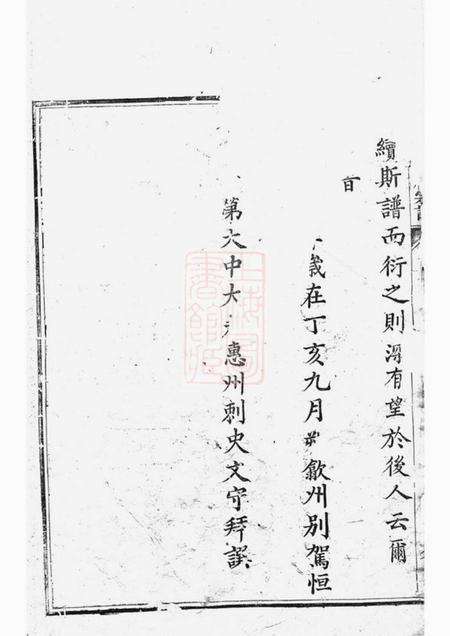 續斯譜而衍之則深有望於後人云爾
首
歲在丁亥九月 歙州別駕恒
第大中大夫惠州刺史文守拜譔
上海圖書館藏